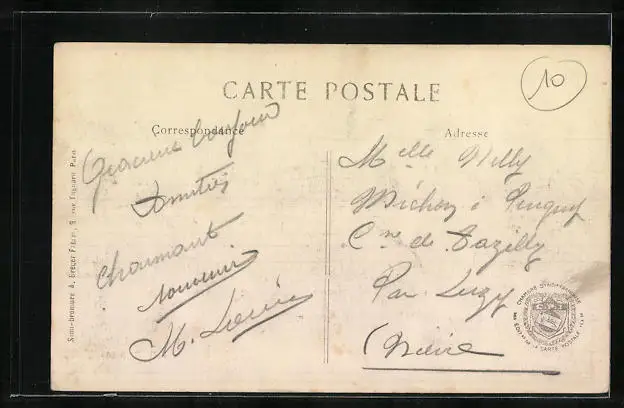 10
CARTE POSTALE
Correspondance
Adresse
Gracieux bonjour
Amitiés
Charmant
souvenir
M.
Melle Nelly
Michon à
Cne de Tazilly
Par Luzy
(Nièvre
Simi-bromure A. Breger Frères, 9, rue Thénard, Paris
CHAMBRE SYNDICALE
CARTE POSTALE